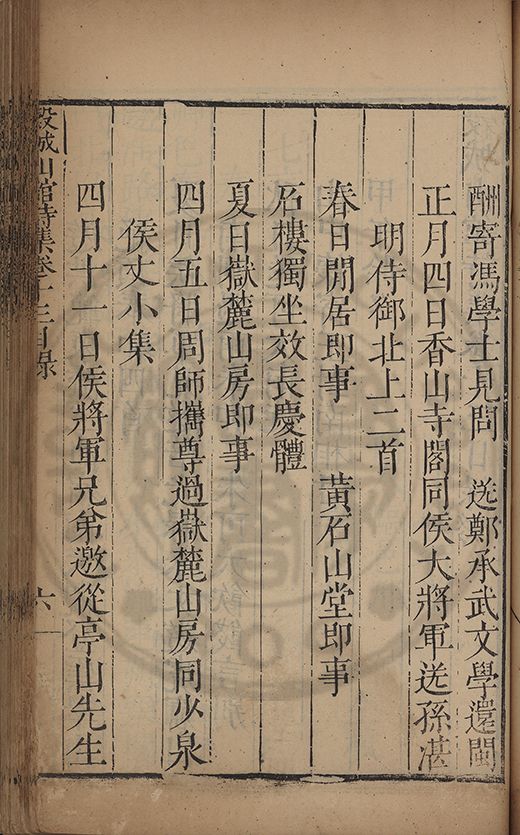 酬寄馮學士見問　送鄭承武文學還閩
正月四日香山寺閣同侯大將軍送孫湛
明侍御北上二首
春日閒居即事　黃石山堂即事
石樓獨坐效長慶體
夏日嶽麓山房即事
四月五日周師攜尊過嶽麓山房同少泉
侯丈小集
四月十一日侯將軍兄弟邀從亭山先生
穀城山館詩集卷十三目录
六